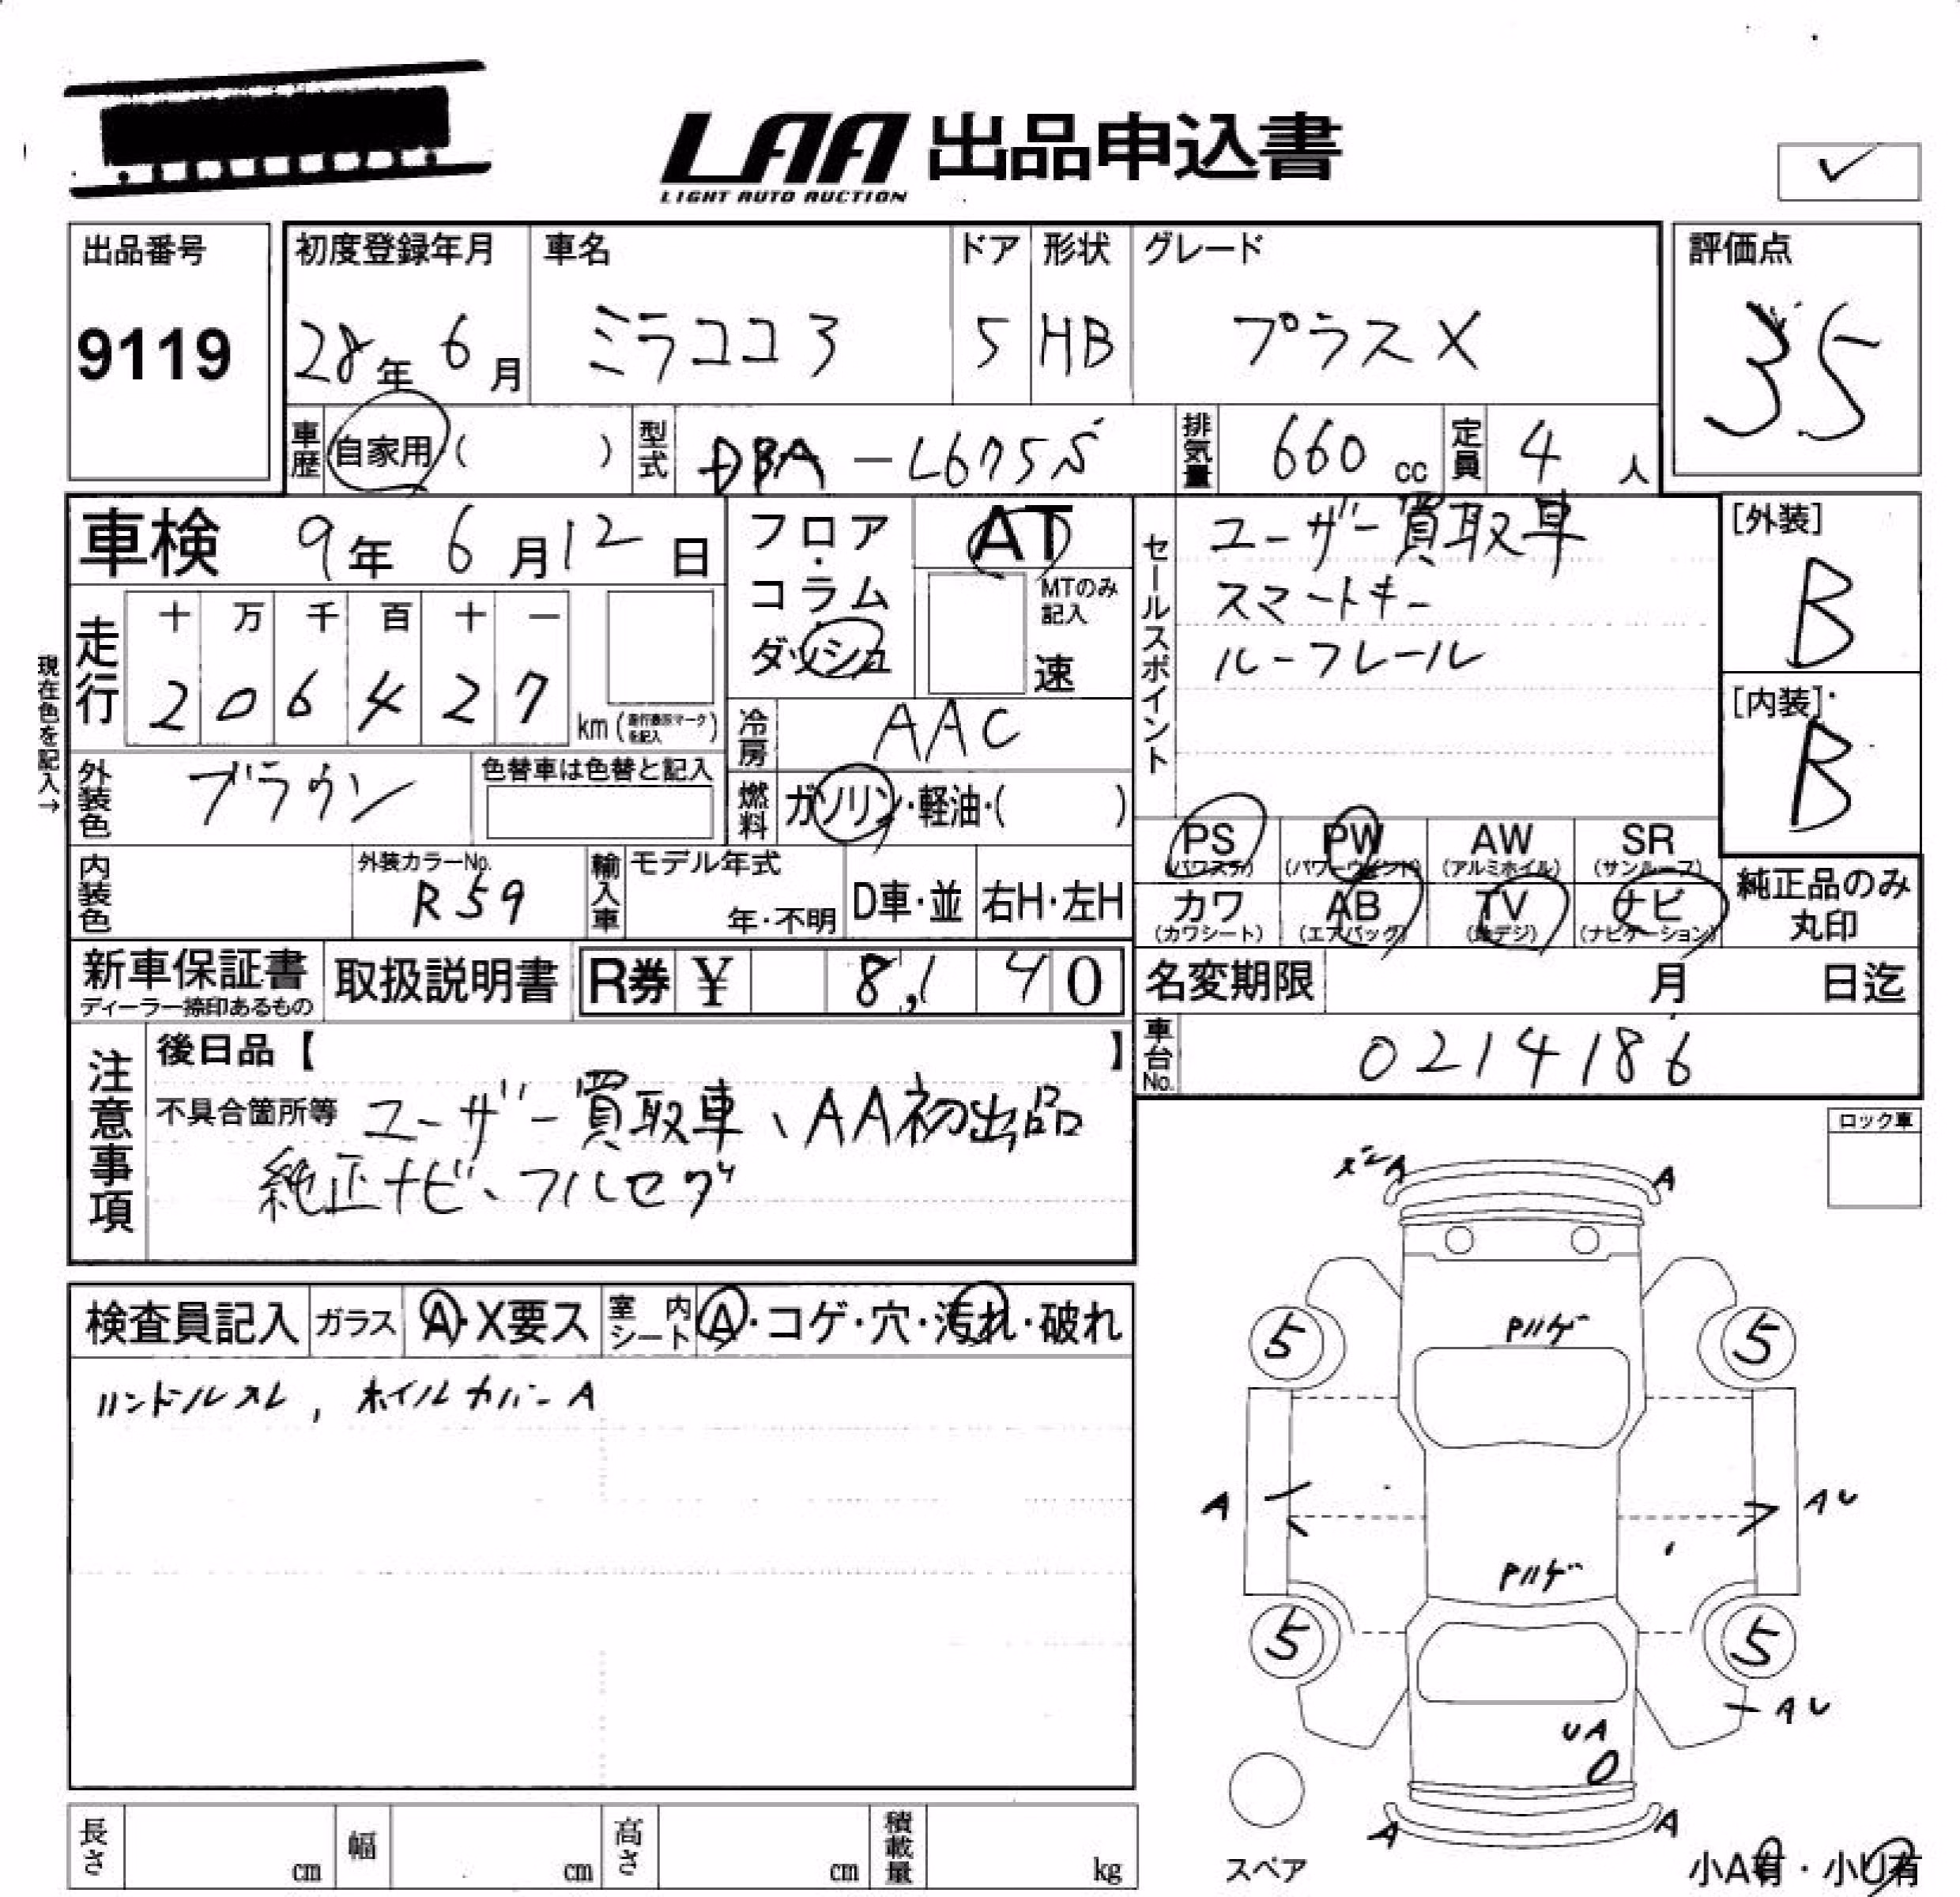 LAA 出品申込書
LIGHT AUTO AUCTION
出品番号
9119
初度登録年月
28年 6月
車名
ミラココア
ドア
5
形状
HB
グレード
プラスX
評価点
3.5
車歴 自家用( )
型式 DBA-L675S
排気量 660 cc
定員 4 人
車検 9年 6月12日
フロア・コラム・ダッシュ
AT
MTのみ記入
速
セールスポイント
ユーザー買取車
スマートキー
ルーフレール
[外装]
B
[内装]
B
現在色を記入→
走行
十 万 千 百 十 一
2 0 6 4 2 7 km(走行表示マークを記入)
冷房 AAC
外装色 ブラウン
色替車は色替と記入
燃料 ガソリン・軽油・( )
内装色
外装カラーNo.
R59
輸入車
モデル年式
年・不明
D車・並
右H・左H
PS
(パワステ)
PW
(パワーウインド)
AW
(アルミホイル)
SR
(サンルーフ)
カワ
(カワシート)
AB
(エアバッグ)
TV
(地デジ)
ナビ
(ナビゲーション)
純正品のみ
丸印
新車保証書
ディーラー捺印あるもの
取扱説明書
R券 ¥ 8,140
名変期限 月 日迄
車台No. 0214186
注意事項
後日品【 】
不具合箇所等 ユーザー買取車、AA初出品
純正ナビ、フルセグ
ロック車
検査員記入
ガラス A・X要ス
室内シート A・コゲ・穴・汚れ・破れ
ハンドルスレ, ホイルカバーA
ズレA
A
Pハゲ
5
5
A
AU
Pハゲ
5
5
AU
UA
A
A
スペア
小A有・小U有
長さ cm
幅 cm
高さ cm
積載量 kg